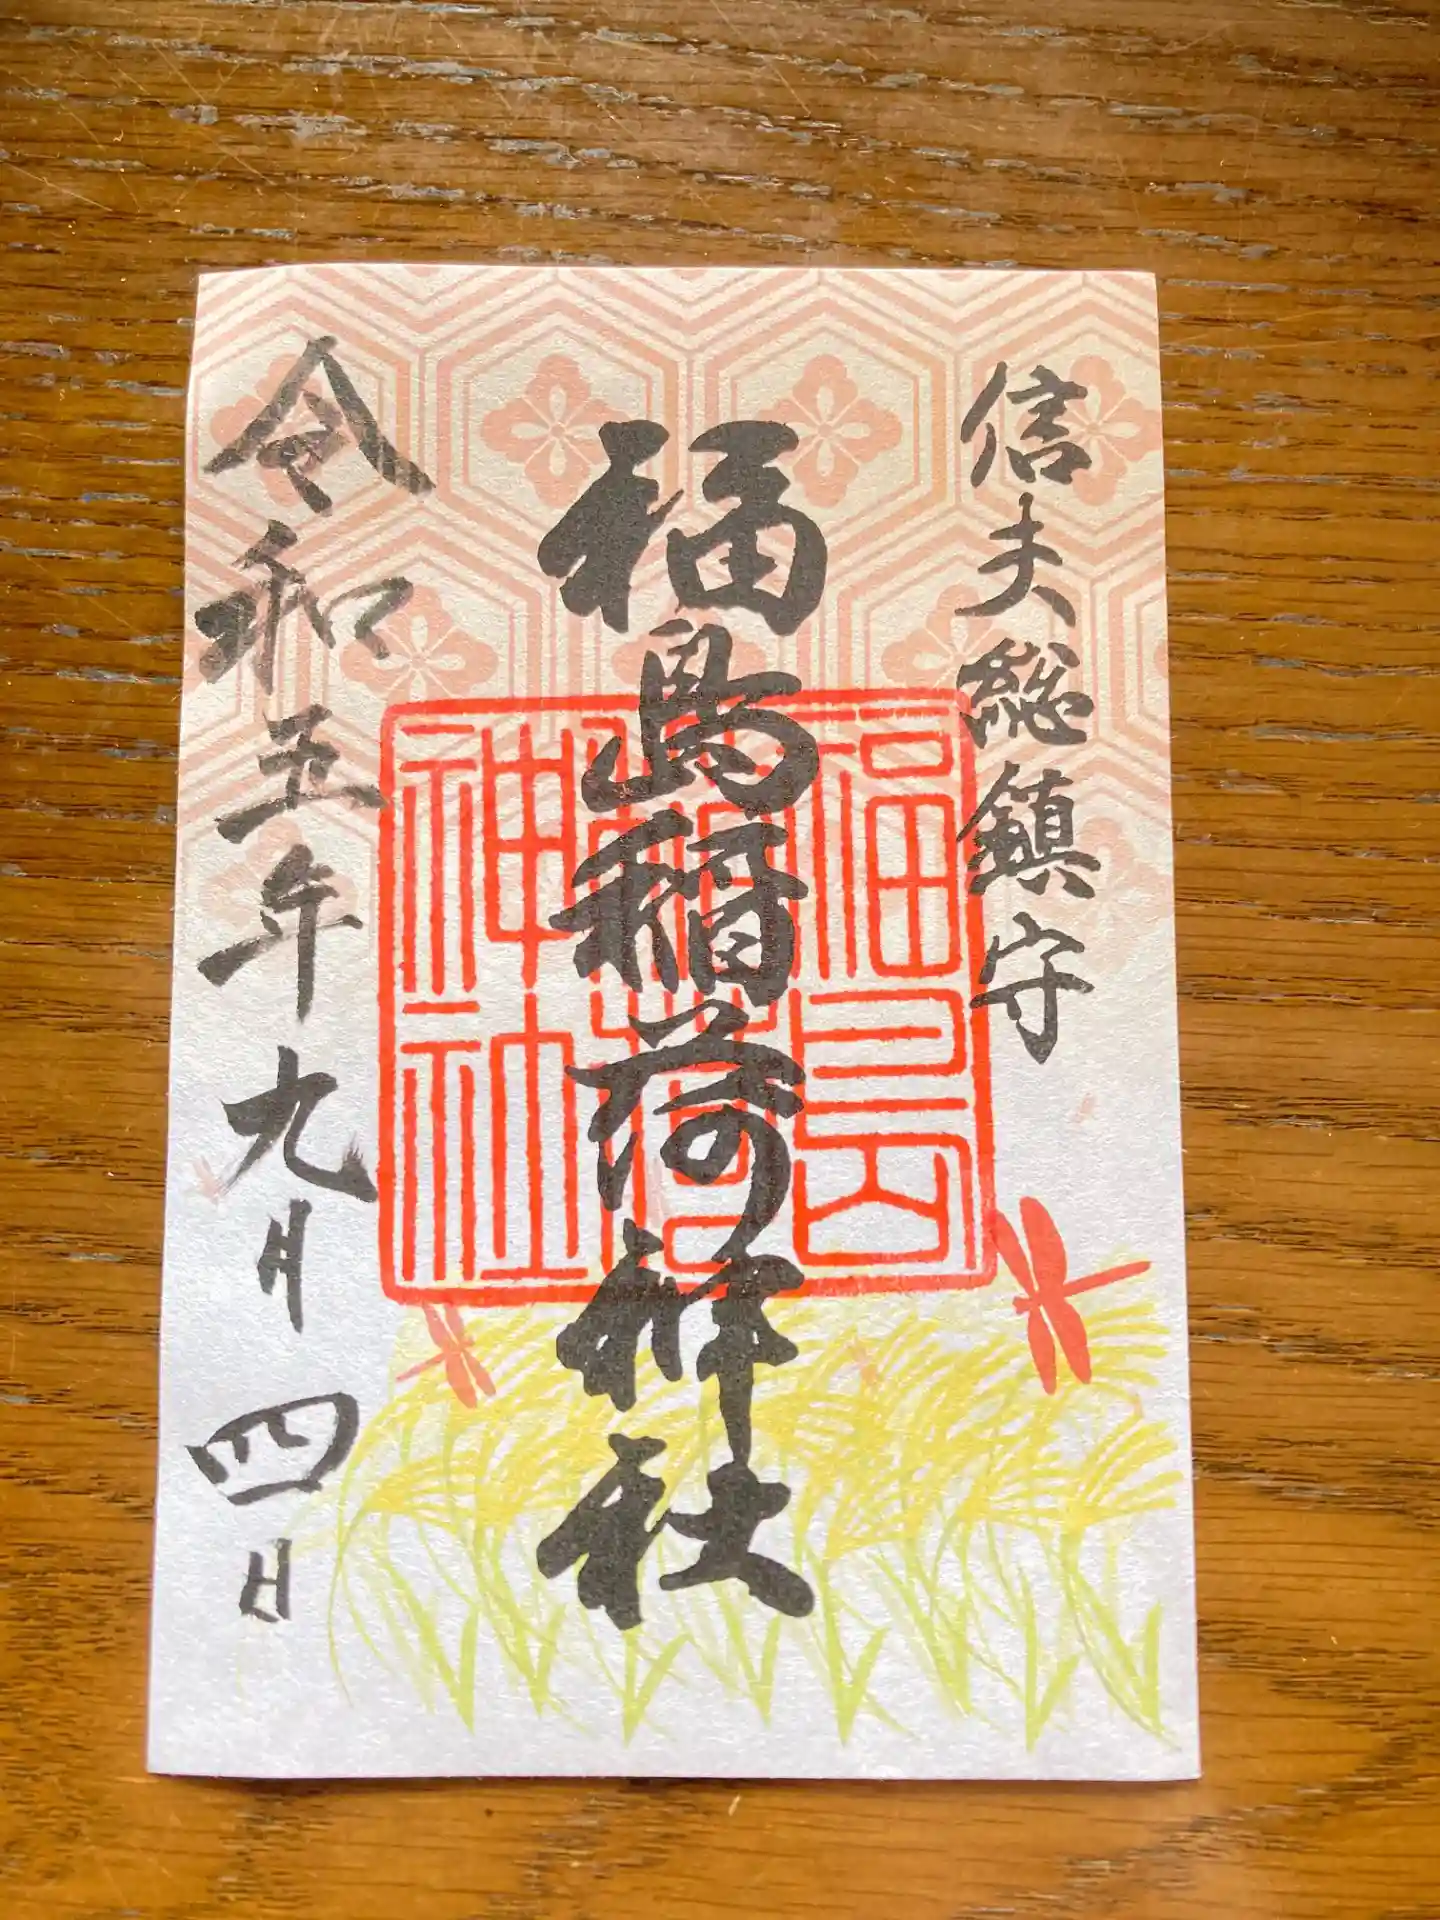 信夫総鎮守
福島稲荷神社
福島
稲荷
神社
令和五年九月四日